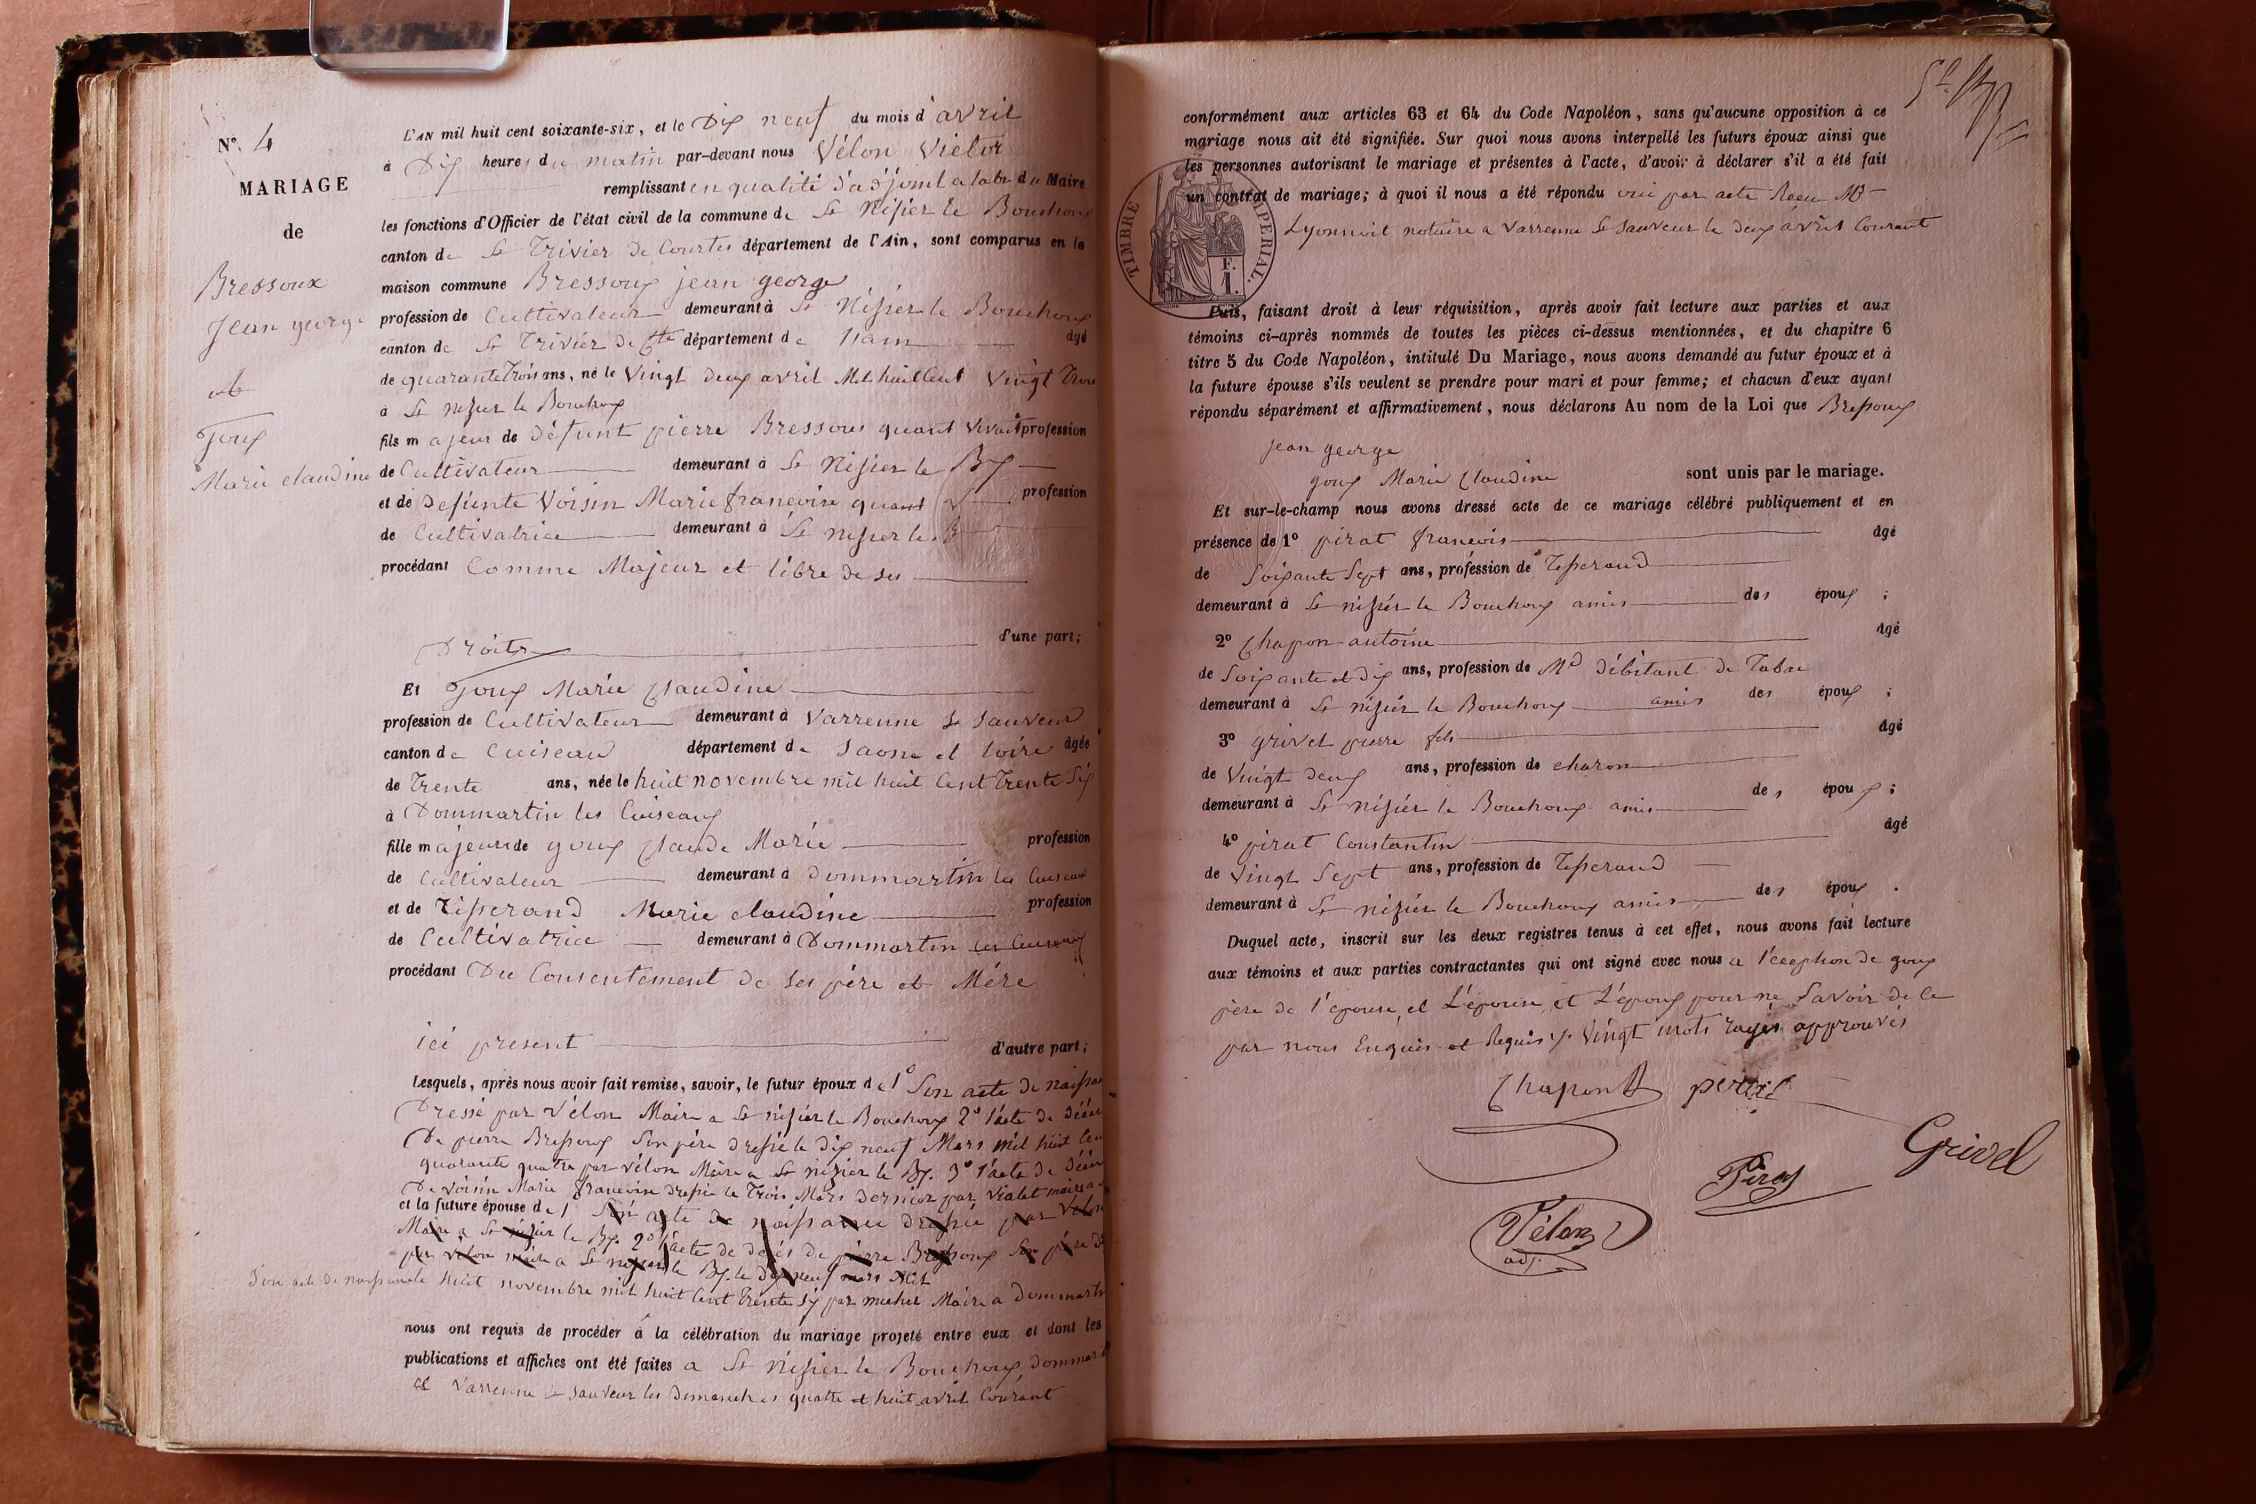 N°. 4
MARIAGE
de
Bressoux
Jean george
et
Joux
Marie claudine
L'AN mil huit cent soixante-six, et le Dix neuf du mois d'avril
à Dix heures du matin par-devant nous Vélon Victor
remplissant en qualité d'adjoint du Maire
les fonctions d'Officier de l'état civil de la commune de St Nisier le Bouchoux
canton de St Trivier de Courtes département de l'Ain, sont comparus en la
maison commune Bressoux jean george
profession de Cultivateur demeurant à St Nisier le Bouchoux
canton de St Trivier de Ctes département de l'ain âgé
de quarante trois ans, né le vingt deux avril Mil huit Cent Vingt Trois
à St nizier le Bouchoux
fils majeur de défunt pierre Bressoux quant vivait profession
de Cultivateur demeurant à St Nisier le Bx
et de defunte Voisin Marie francoise quant v profession
de Cultivatrice demeurant à St nisier le B
procédant Comme Majeur et libre de ses
Droits d'une part;
Et Joux Marie Claudine
profession de Cultivateur demeurant à Varrenne St Sauveur
canton de Cuiseau département de Saone et loire âgée
de Trente ans, née le huit novembre mil huit Cent Trente Six
à Dommartin les Cuiseaux
fille majeure de goux Claude Marie profession
de Cultivateur demeurant à Dommartin les Cuiseaux
et de Tisserand Marie claudine profession
de Cultivatrice demeurant à Dommartin les Cuiseaux
procédant Du Consentement de Ses père et Mère
ici present d'autre part;
Lesquels, après nous avoir fait remise, savoir, le futur époux de 1° Son acte de naissan
Dressé par Vélon Maire a St nisier le Bouchoux 2° l'acte de décès
De pierre Bressoux Son père dressé le dix neuf Mars mil huit Cen
quarante quatre par vélon Maire a St nizier le Bx. 3° l'acte de décès
De voisin Marie francoise dressé le Trois Mars dernier par Violet maire a
et la future épouse de 1 Son acte de naissance dressé par Vélon
Maire a St nizier le Bx. 2° l'acte de decés de pierre Bressoux Son père
par vélon maire a St nizier le Bx. le dix neuf mars Mil
Son acte de naissance le huit novembre mil huit Cent Trente Six par michel Maire a Dommartin
nous ont requis de procéder à la célébration du mariage projeté entre eux et dont les
publications et affiches ont été faites a St Nisier le Bouchoux, Dommar
et Varrenne St Sauveur les Dimanches quatre et huit avril Courant
conformément aux articles 63 et 64 du Code Napoléon, sans qu'aucune opposition à ce
mariage nous ait été signifiée. Sur quoi nous avons interpellé les futurs époux ainsi que
les personnes autorisant le mariage et présentes à l'acte, d'avoir à déclarer s'il a été fait
un contrat de mariage; à quoi il nous a été répondu oui par acte Recu Me
Lyonnoit notaire a Varrenne St Sauveur le deux avril Courant
TIMBRE IMPERIAL.
F.
1.
Puis, faisant droit à leur réquisition, après avoir fait lecture aux parties et aux
témoins ci-après nommés de toutes les pièces ci-dessus mentionnées, et du chapitre 6
titre 5 du Code Napoléon, intitulé Du Mariage, nous avons demandé au futur époux et à
la future épouse s'ils veulent se prendre pour mari et pour femme; et chacun d'eux ayant
répondu séparément et affirmativement, nous déclarons Au nom de la Loi que Bressoux
jean george
goux Marie Claudine sont unis par le mariage.
Et sur-le-champ nous avons dressé acte de ce mariage célébré publiquement et en
présence de 1° pirat francois âgé
de Soixante Sept ans, profession de Tisserand
demeurant à St nisier le Bouchoux amis des époux;
2° Chapon antoine âgé
de Soixante et dix ans, profession de Md débitant de Tabac
demeurant à St nizier le Bouchoux amis des époux;
3° grivel pierre fils âgé
de Vingt deux ans, profession de charon
demeurant à St nizier le Bouchoux amis des époux;
4° pirat Constantin âgé
de Vingt Sept ans, profession de Tisserand
demeurant à St nizier le Bouchoux amis des époux.
Duquel acte, inscrit sur les deux registres tenus à cet effet, nous avons fait lecture
aux témoins et aux parties contractantes qui ont signé avec nous a l'éception de goux
père de l'épouse, et L'épouse, et L'époux pour ne Savoir de ce
par nous Enquis et Requis Vingt mots rayés approuvés
Chapon
Grivel
Vélon
adj.